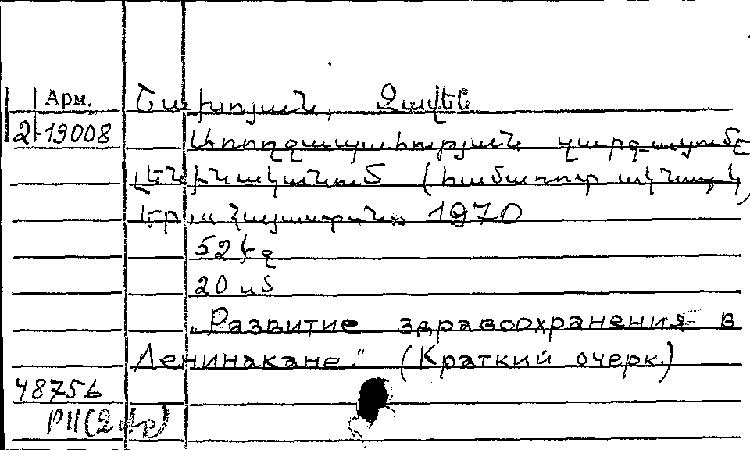 Арм.
2-13008
Նախոյան, Զավեն
Առողջապահության զարգացումը
Լենինականում (համառոտ ակնարկ)
Եր. "Հայաստան" 1970
52 էջ
20 սմ
"Развитие здравоохранения в
Ленинакане." (Краткий очерк)
48756